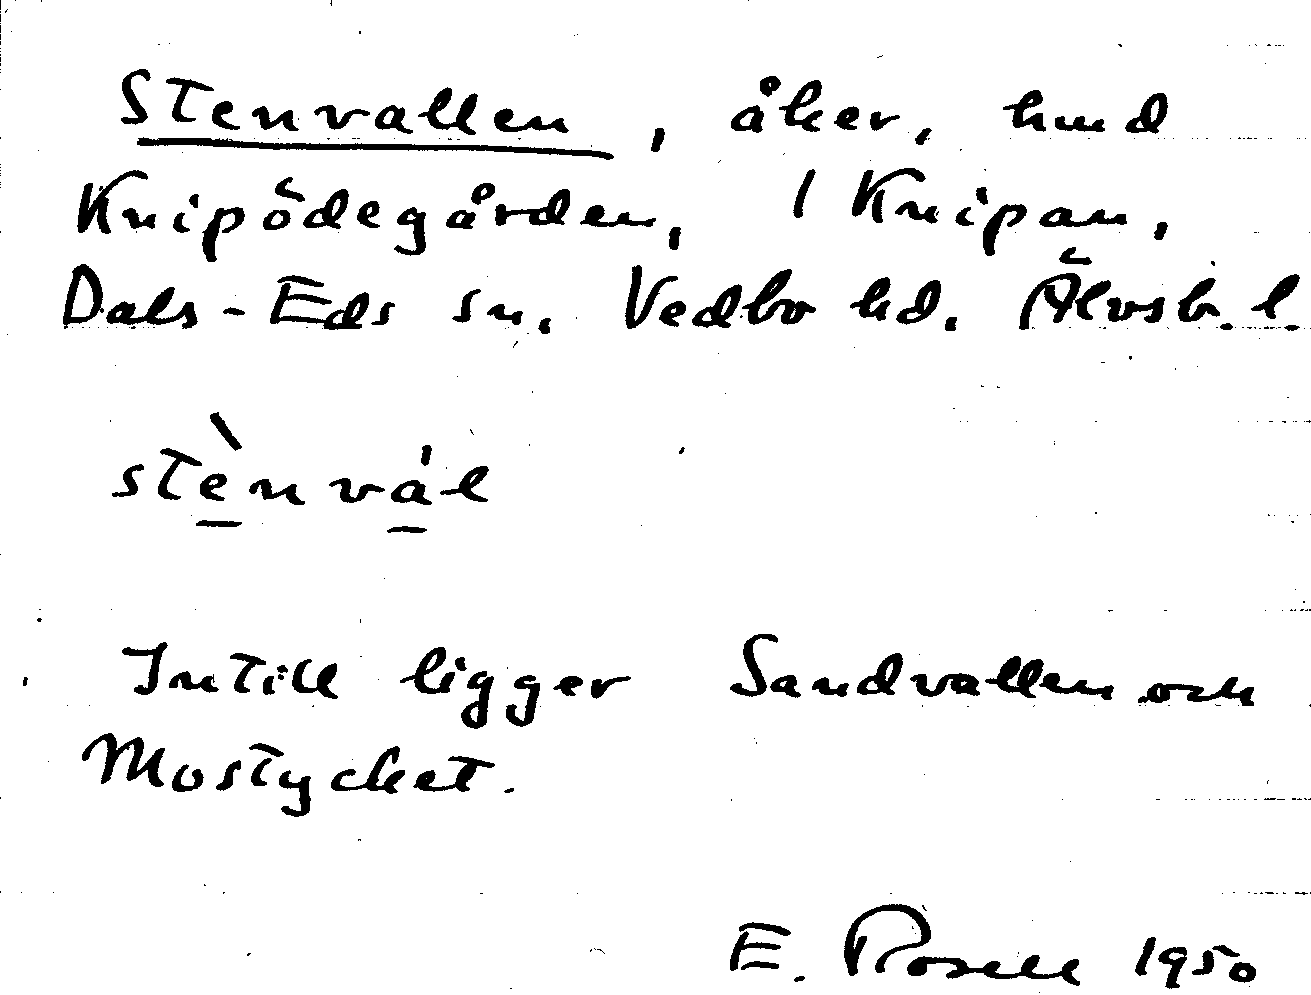 Stenvallen, åker, hmd
Knipödegården, 1 Knipan,
Dals-Eds sn. Vedbo hd. Älvsb. l.
stènvál
Intill ligger Sandvallen och
Mostycket.
E. Rosell 1950